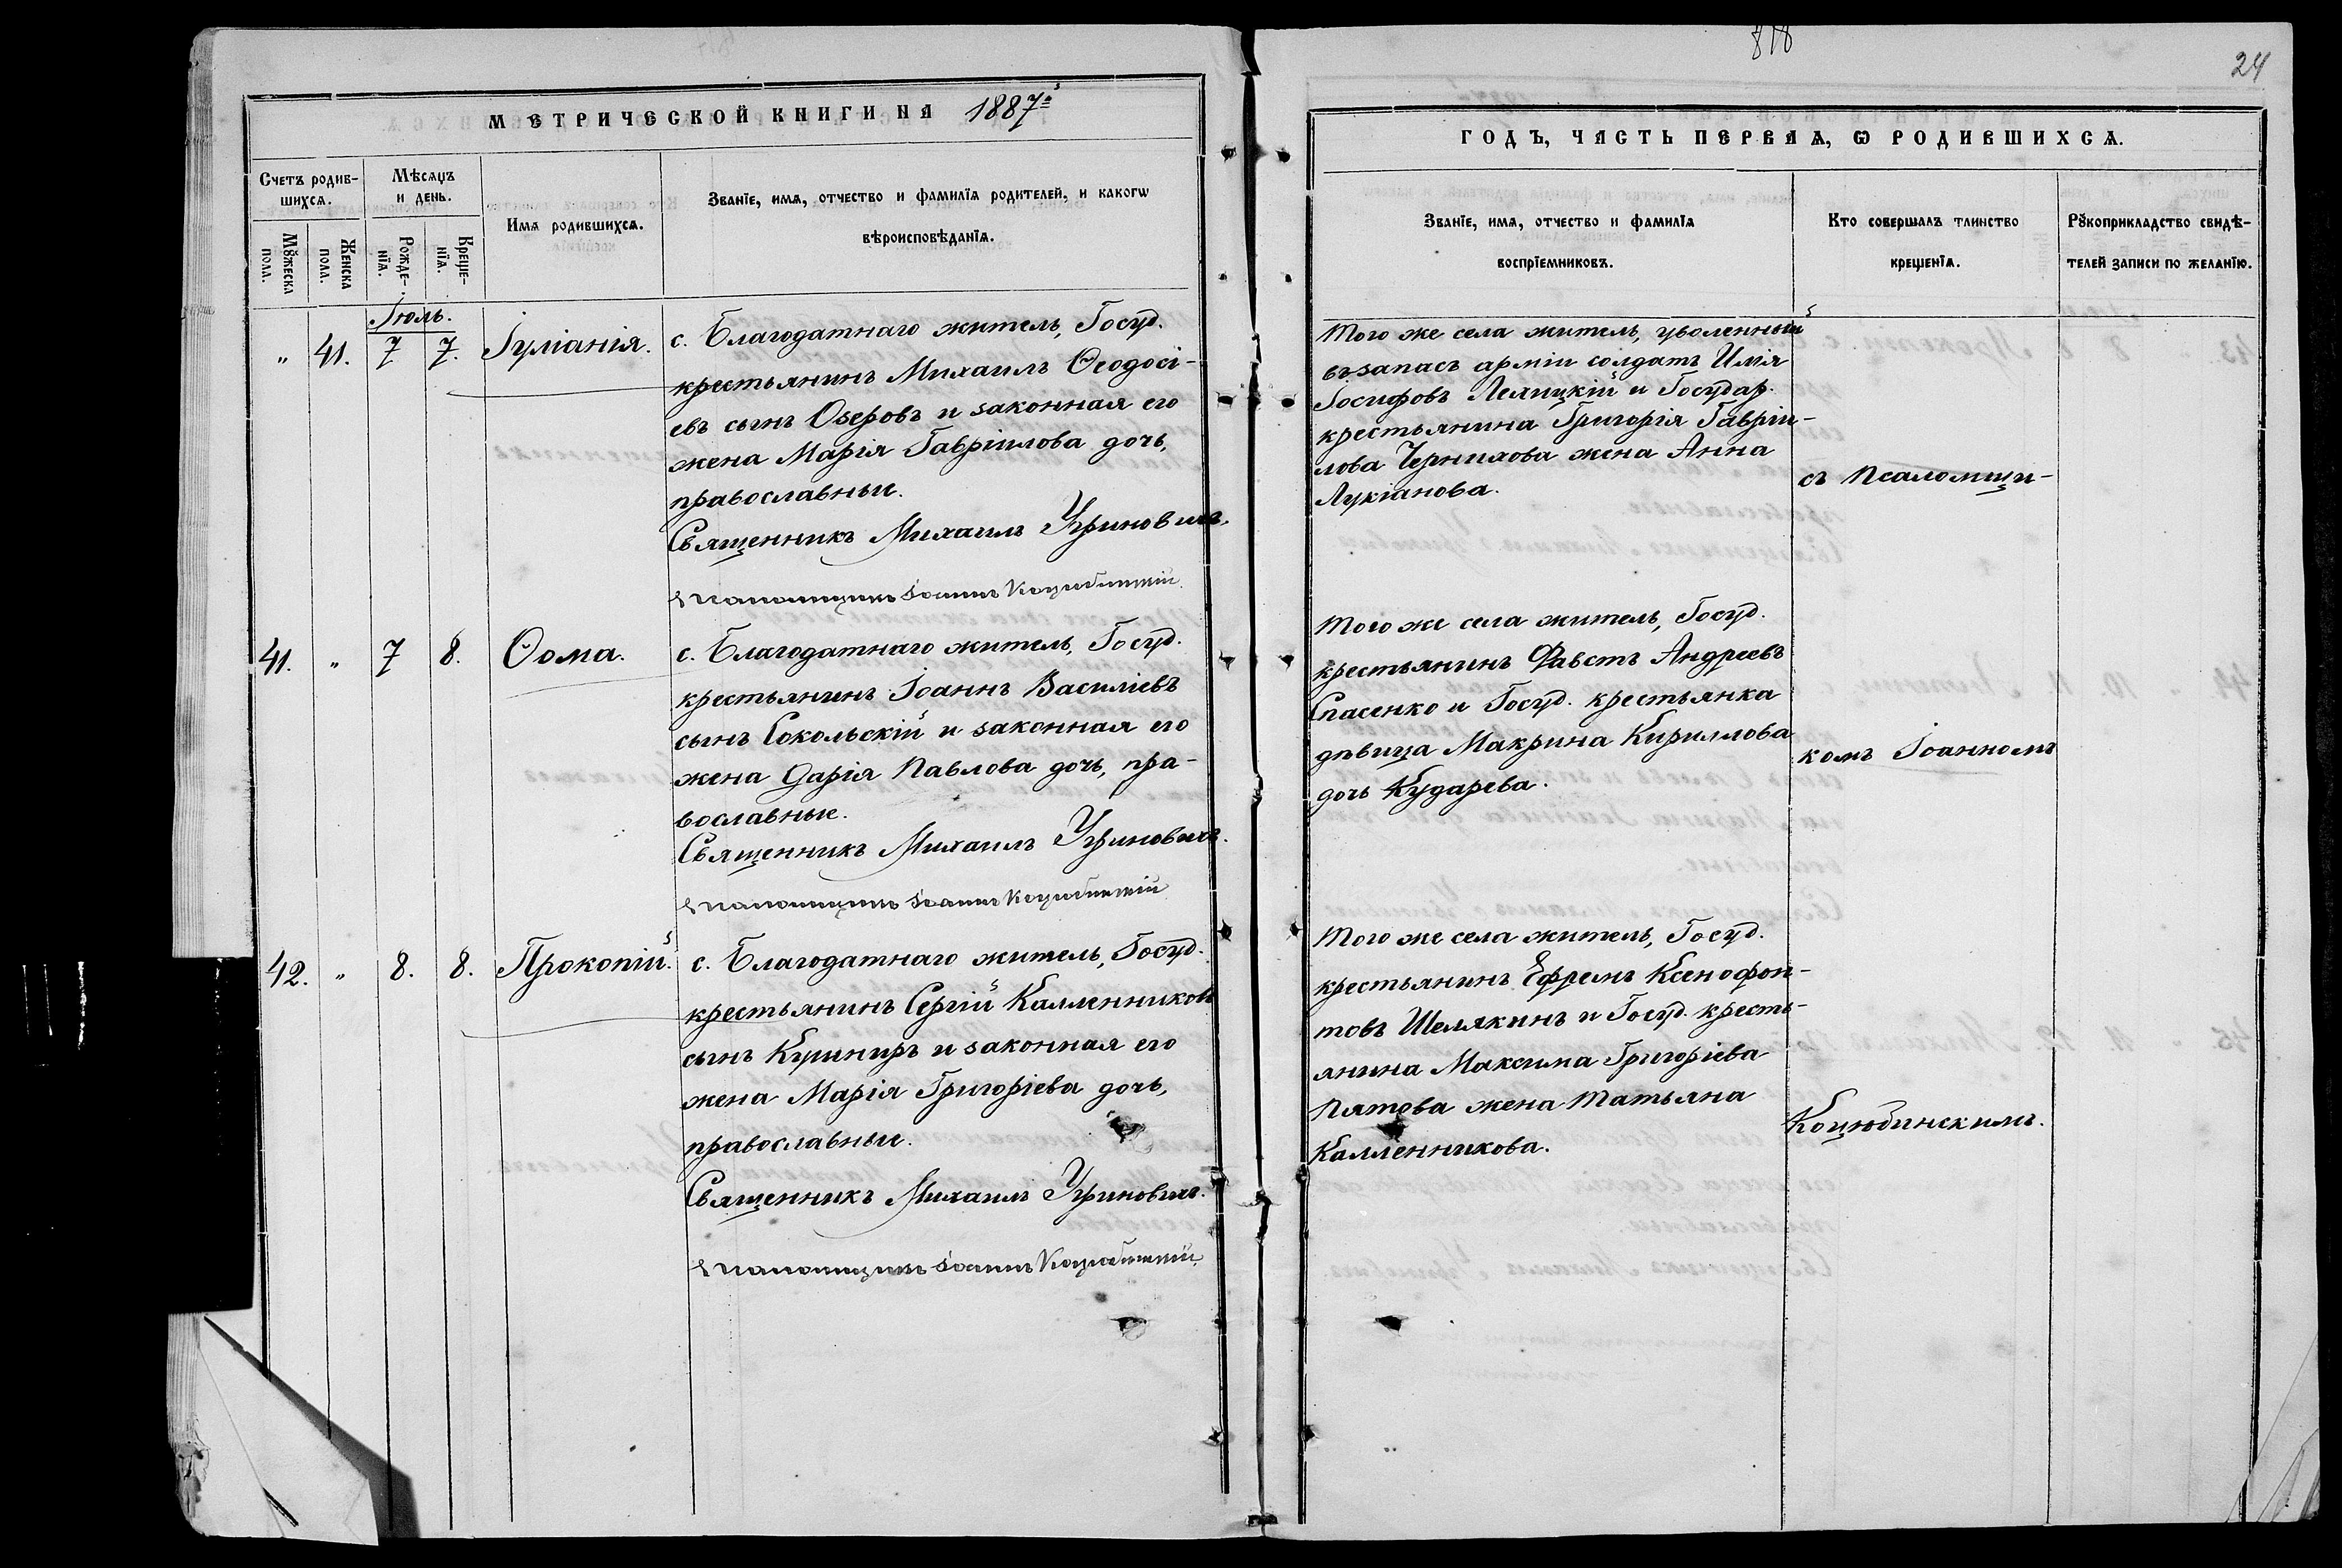 818
24
МЕТРИЧЕСКОЙ КНИГИ НА 1887й
ГОДЪ, ЧАСТЬ ПЕРВАЯ, Ѡ РОДИВШИХСѦ.
Счетъ родив-
шихсѧ.
Мѣсяцъ
и день.
Имѧ родившихсѧ.
Званїе, имѧ, отчество и фамилїѧ родителей, и какогѡ
вѣроисповѣданїѧ.
Мꙋжеска
пола.
Женска
пола.
Рожде-
нїѧ.
Креще-
нїѧ.
Званїе, имѧ, отчество и фамилїѧ
воспрїемниковъ.
Кто совершалъ таинство
крещенїѧ.
Рꙋкоприкладство свидѣ-
телей записи по желанїю.
Іюль.
" 41. 7 7. Іуліанія.
с. Благодатнаго житель, Госуд.
крестьянинъ Михаилъ Ѳеодосі-
евъ сынъ Озеровъ и законная его
жена Марія Гавріилова дочь,
православные.
Священникъ Михаилъ Угриновичъ.
Псаломщикъ Іоаннъ Коцюбинскій.
Того же села житель, уволенный
въ запасъ арміи солдатъ Илія
Іосифовъ Лелицкій и Государ.
крестьянина Григорія Гавріи-
лова Чернихова жена Анна
Лукіанова.
съ Псаломщи-
41. " 7 8. Ѳома.
с. Благодатнаго житель, Госуд.
крестьянинъ Іоаннъ Василіевъ
сынъ Сокольскій и законная его
жена Дарія Павлова дочь, пра-
вославные.
Священникъ Михаилъ Угриновичъ.
Псаломщикъ Іоаннъ Коцюбинскій
Того же села житель, Госуд.
крестьянинъ Фавстъ Андреевъ
Спасенко и Госуд. крестьянка
дѣвица Макрина Кириллова
дочь Кударева.
комъ Іоанномъ
42. " 8. 8. Прокопій.
с. Благодатнаго житель, Госуд.
крестьянинъ Сергій Каллениковъ
сынъ Кушниръ и законная его
жена Марія Григоріева дочь,
православные.
Священникъ Михаилъ Угриновичъ.
Псаломщикъ Іоаннъ Коцюбинскій.
Того же села житель, Госуд.
крестьянинъ Ефремъ Ксенофон-
товъ Шелякинъ и Госуд. кресть-
янина Максима Григоріева
Пятова жена Татьяна
Калленникова.
Коцюбинскимъ.